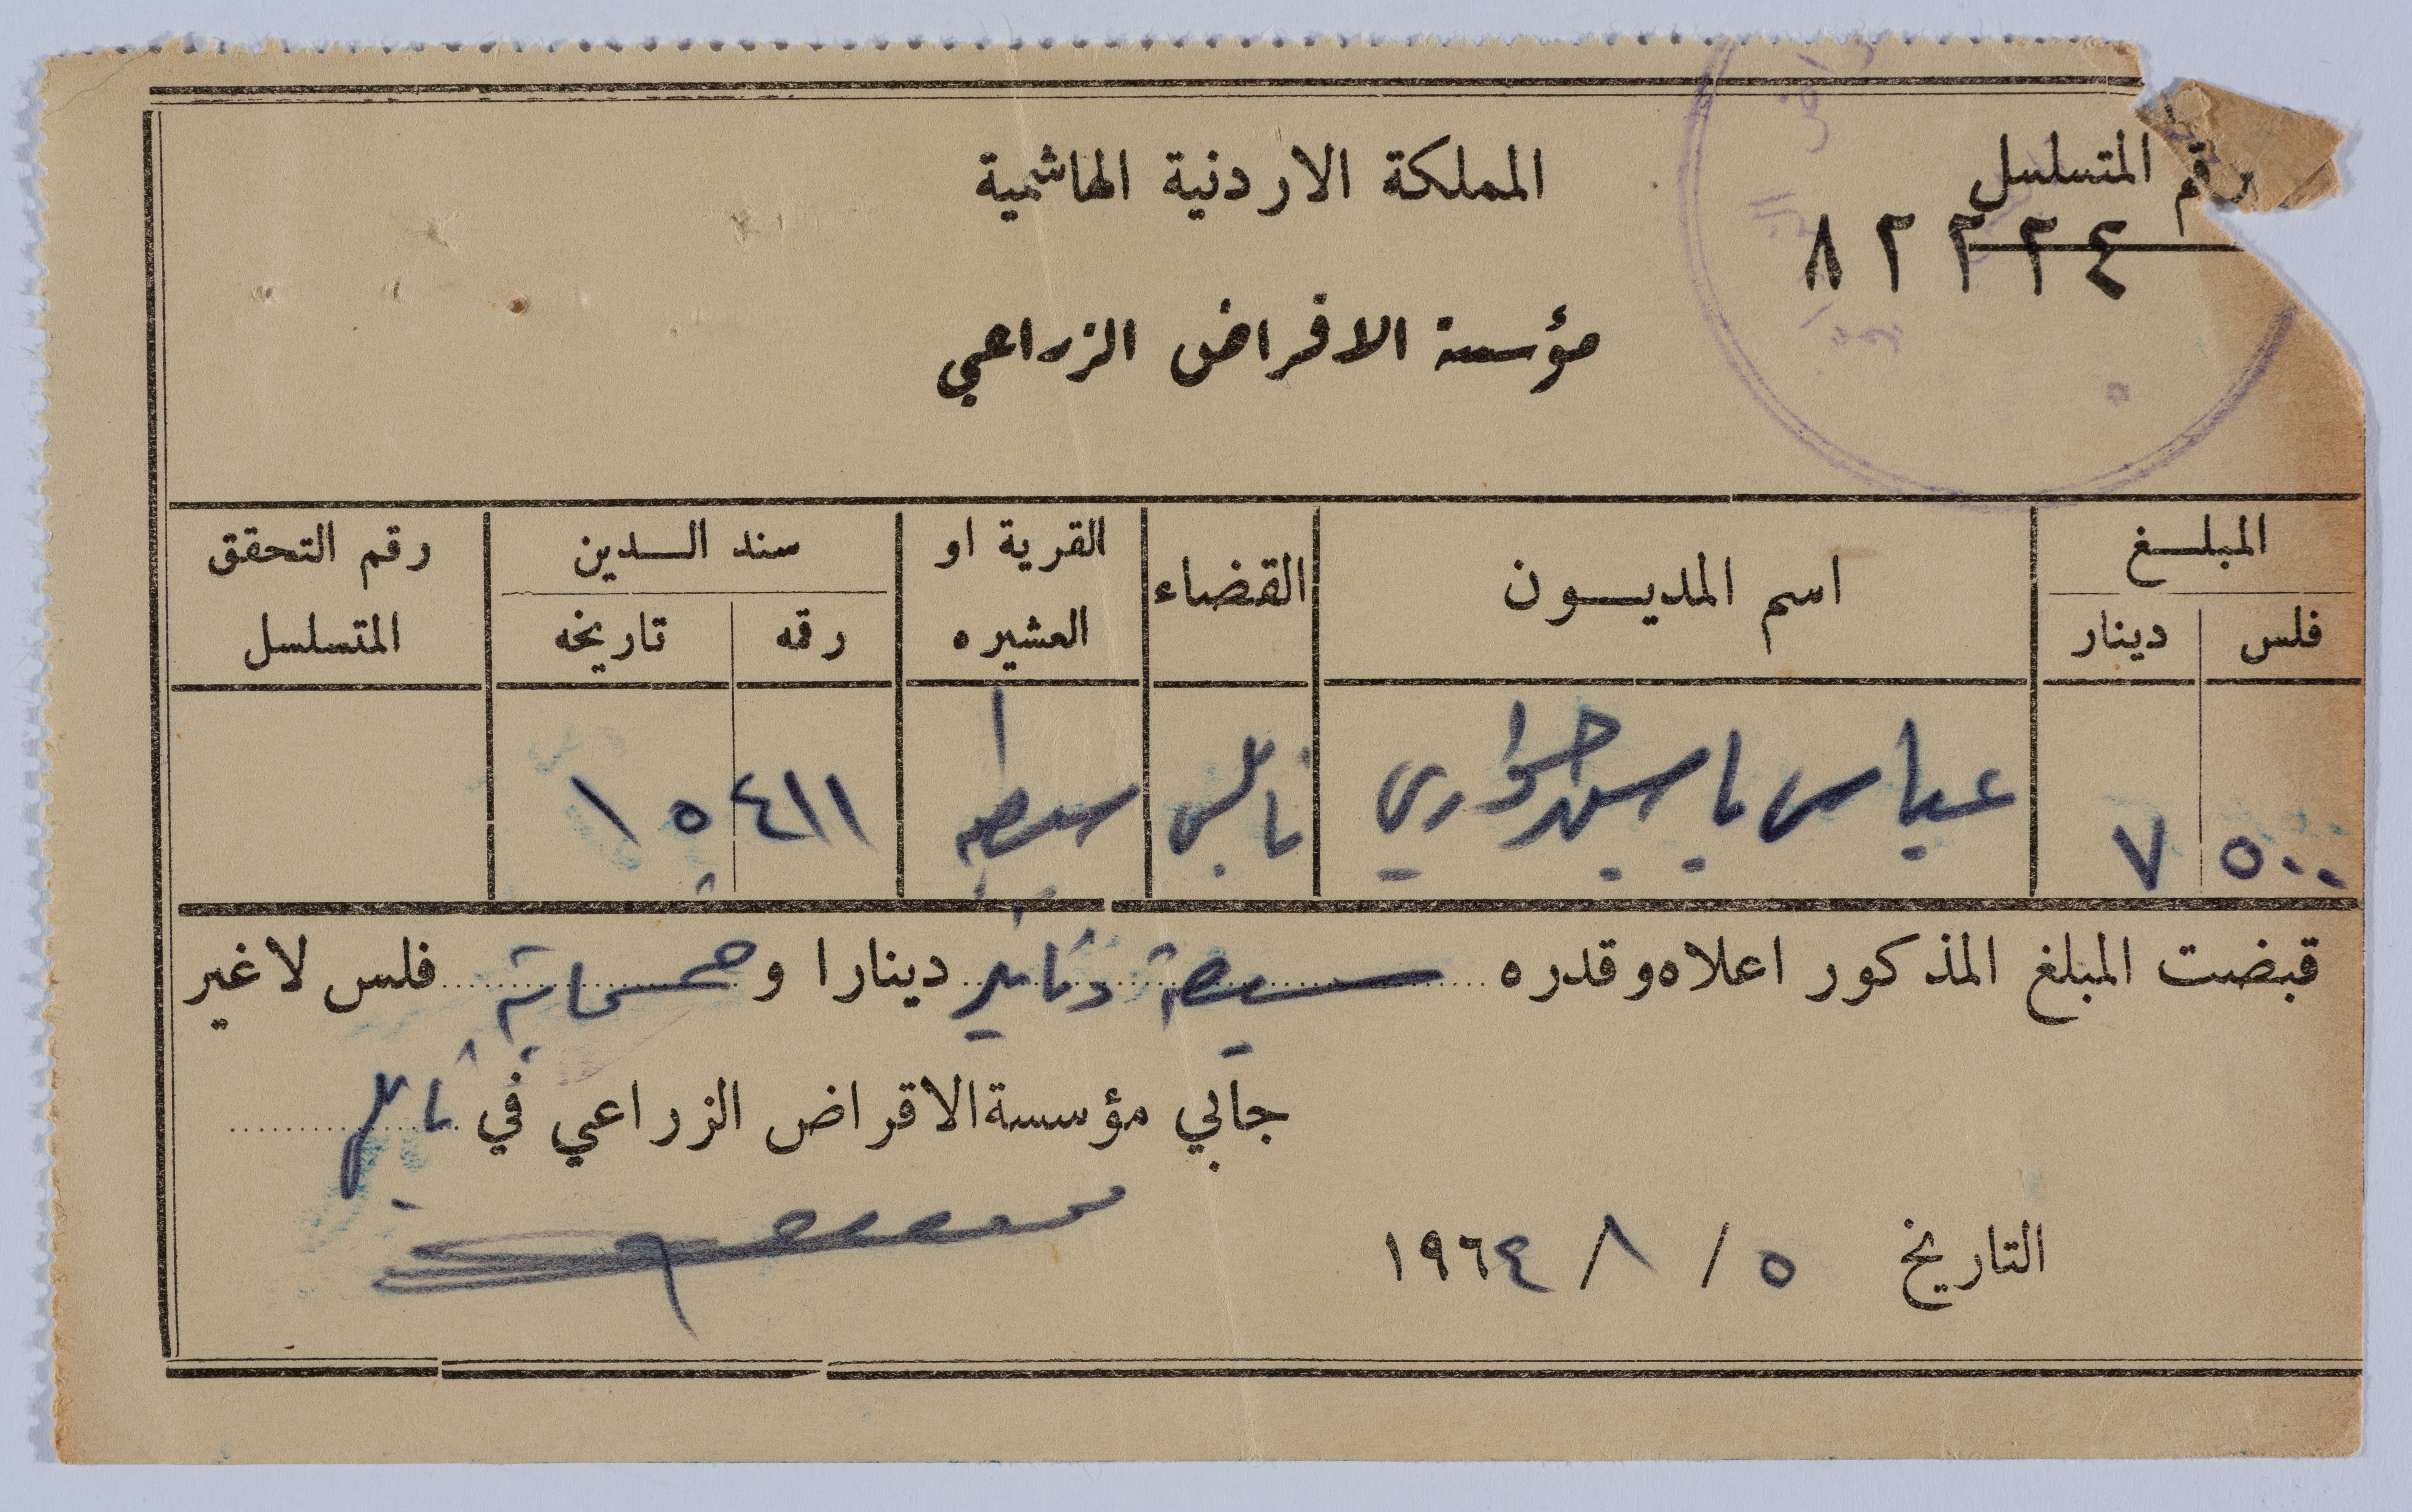 رقم المتسلسل
المملكة الاردنية الهاشمية
٨٢٢٢٤
مؤسسة الاقراض الزراعي
المبلغ
اسم المديون
القضاء
القرية او العشيره
سند الدين
رقم التحقق المتسلسل
فلس دينار
رقمه تاريخه
٥٠٠ ٧ عباس ياسين حواري نابلس سبسطيه ١٥٤١١
قبضت المبلغ المذكور اعلاه وقدره سبعة دنانير دينارا و خمسماية فلس لا غير
جابي مؤسسة الاقراض الزراعي في نابلس
التاريخ ٥ / ٨ / ١٩٦٤